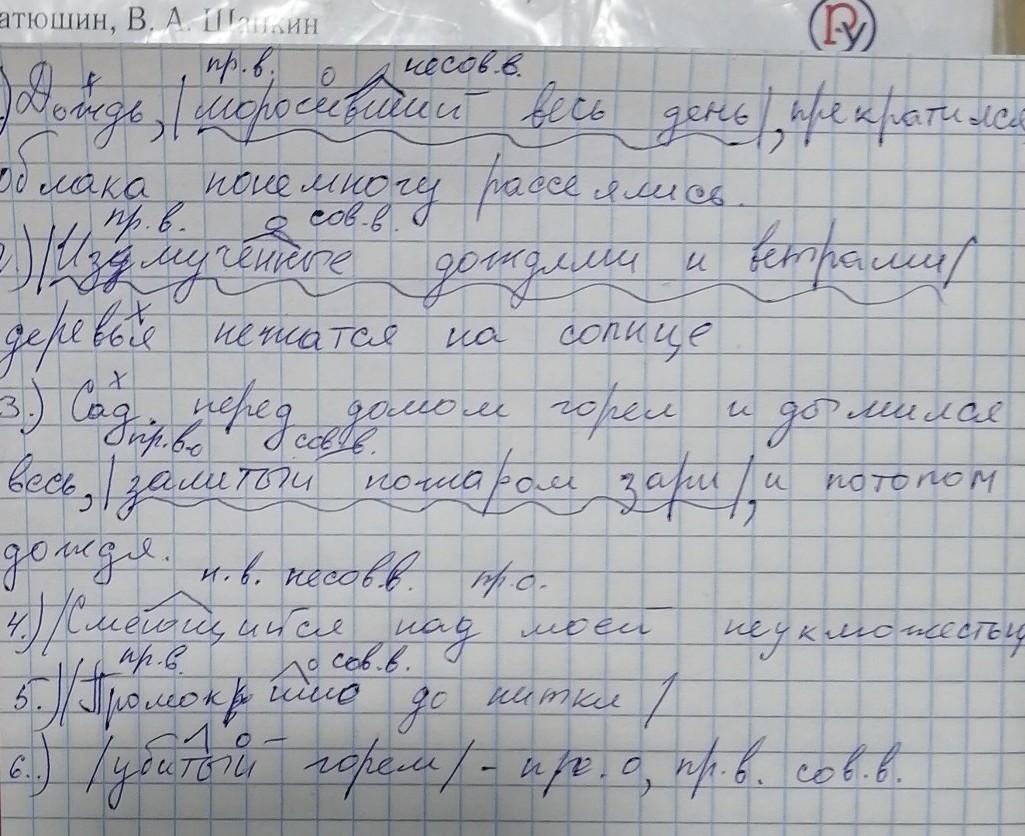 атюшин, В. А. Шапкин
пр.в. о несов.в.
Дождь, | моросивший весь день |, прекратился
облака понемногу рассеялись.
пр.в. сов.в.
2.) | Измученные дождями и ветрами |
деревья нежатся на солнце
3.) Сад перед домом горел и дымился
пр.в. сов.в.
весь, | залитый пожаром зари |, и потопом
дождя.
н.в. несов.в. пр.о.
4.) | Смеющийся над моей
пр.в. о сов.в.
5.) | до нитки |
о
6.) | убитый горем | - пр. о, пр.в. сов.в.